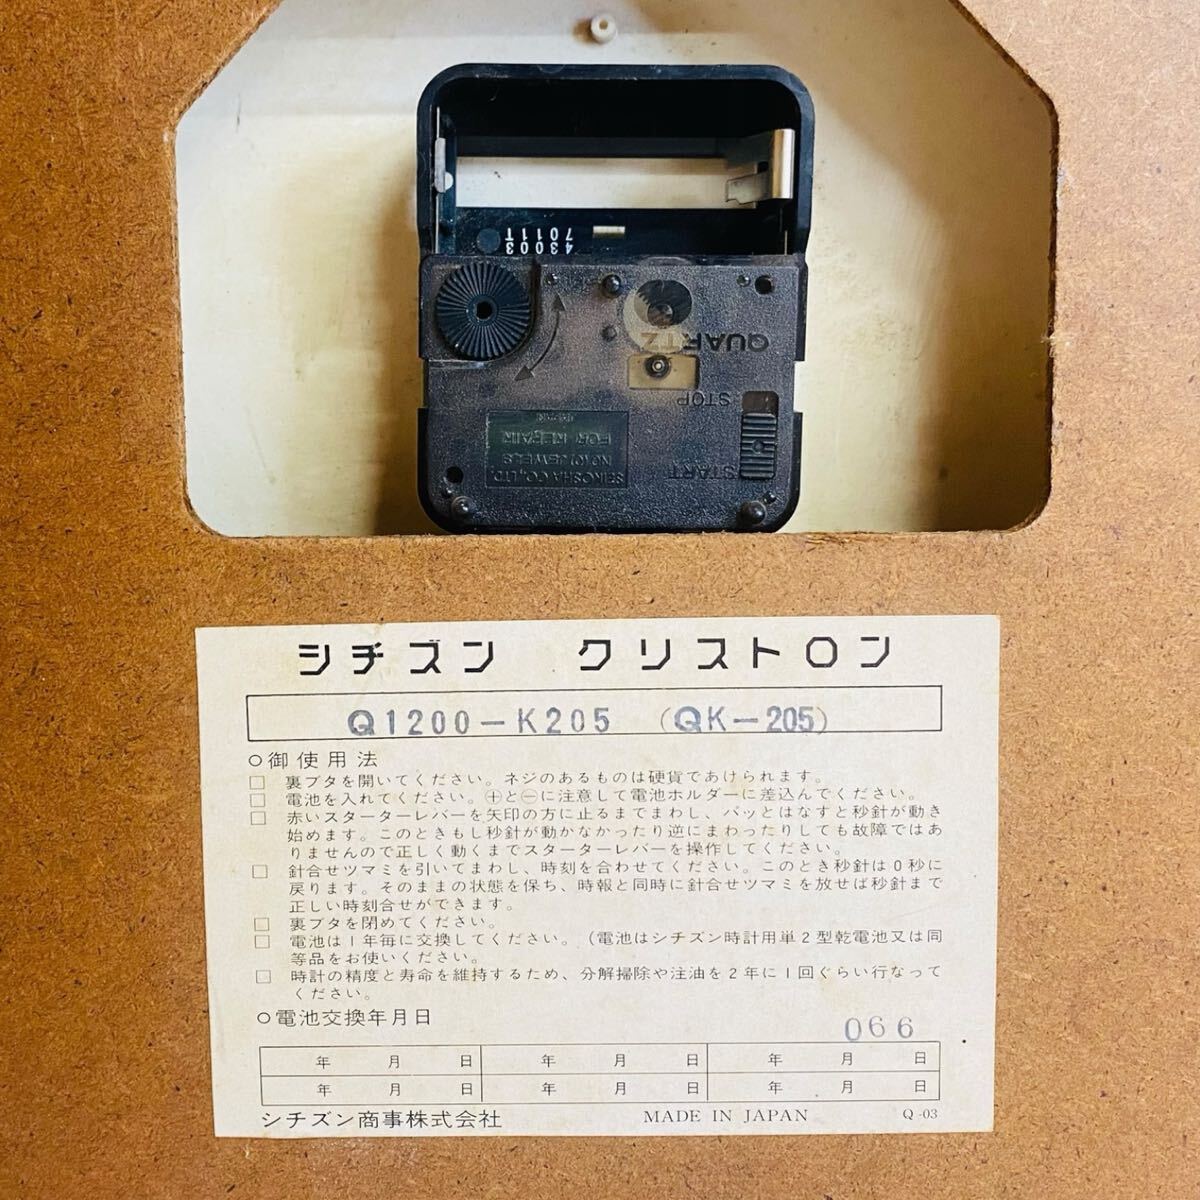 43003
7011T
QUARTZ
STOP
START
FOR REPAIR
NO (0) JEWELS
SEIKOSHA CO., LTD.
シチズン クリストロン
Q1200-K205 (QK-205)
○御使用法
□ 裏ブタを開いてください。ネジのあるものは硬貨であけられます。
□ 電池を入れてください。⊕と⊖に注意して電池ホルダーに差込んでください。
□ 赤いスターターレバーを矢印の方に止るまでまわし、パッとはなすと秒針が動き
始めます。このときもし秒針が動かなかったり逆にまわったりしても故障ではあ
りませんので正しく動くまでスターターレバーを操作してください。
□ 針合せツマミを引いてまわし、時刻を合わせてください。このとき秒針は0秒に
戻ります。そのままの状態を保ち、時報と同時に針合せツマミを放せば秒針まで
正しい時刻合せができます。
□ 裏ブタを閉めてください。
□ 電池は1年毎に交換してください。(電池はシチズン時計用単2型乾電池又は同
等品をお使いください。
□ 時計の精度と寿命を維持するため、分解掃除や注油を2年に1回ぐらい行なって
ください。
○電池交換年月日
066
年 月 日 年 月 日 年 月 日
年 月 日 年 月 日 年 月 日
シチズン商事株式会社 MADE IN JAPAN Q-03